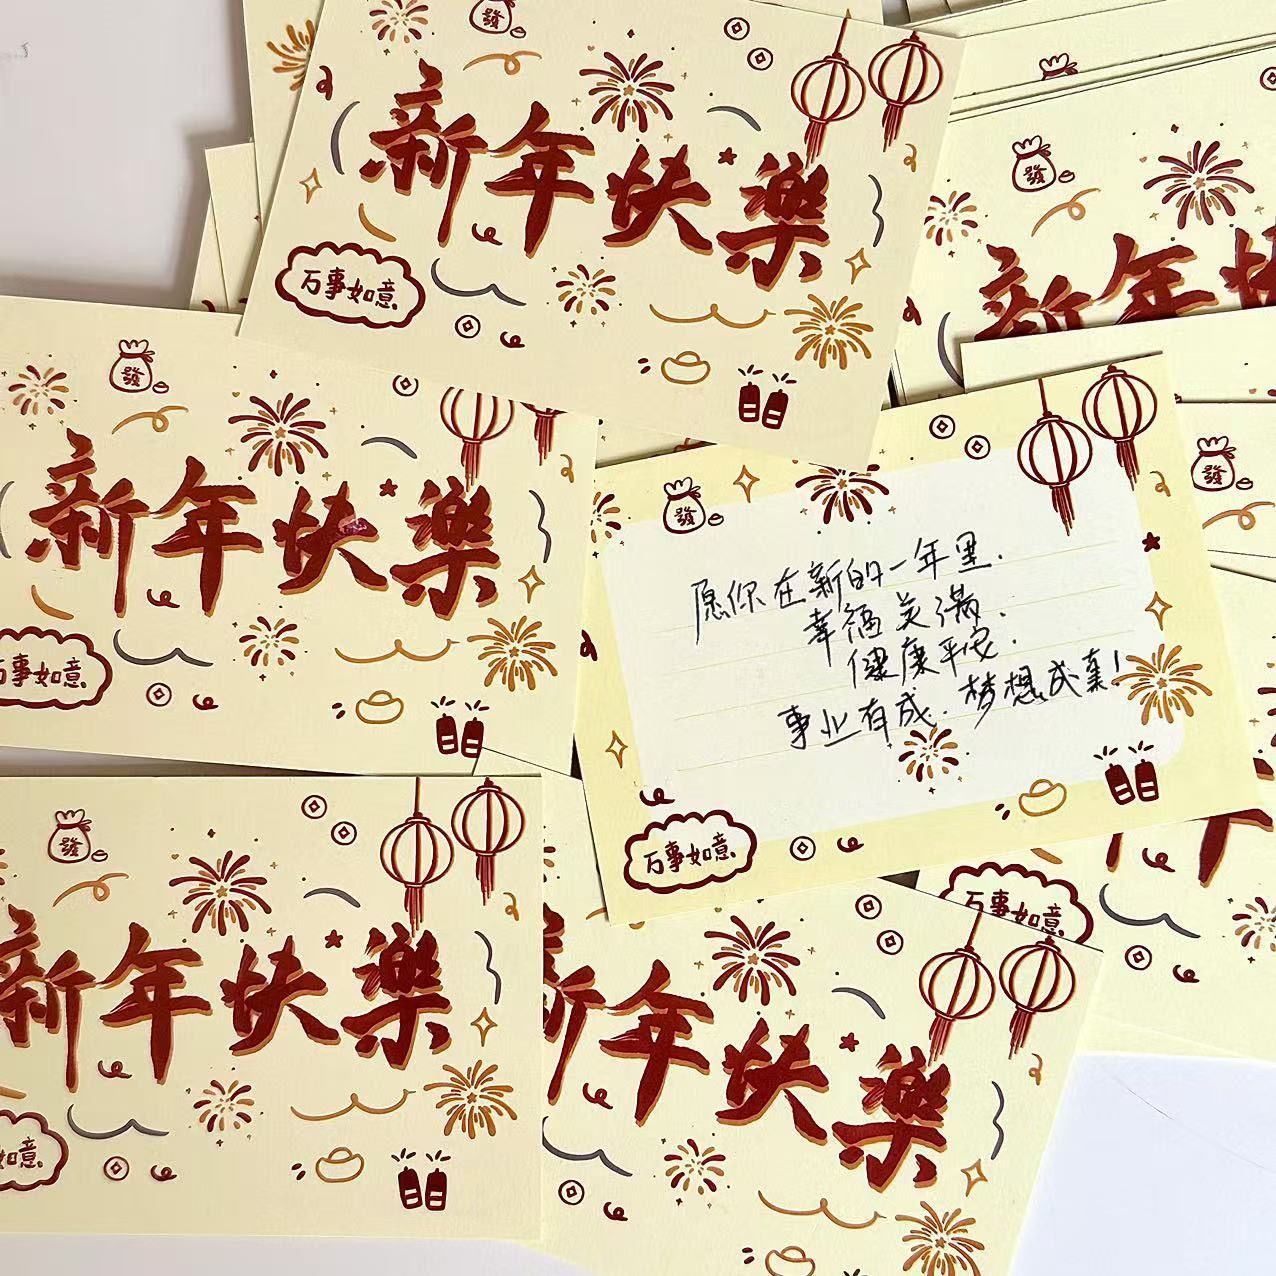 發
新年快樂
万事如意
發
新年快
發
新年快樂
万事如意
發
發
愿你在新的一年里.
幸福美满.
健康平安.
事业有成.梦想成真!
万事如意
發
新年快樂
如意
万事如意
新年快樂